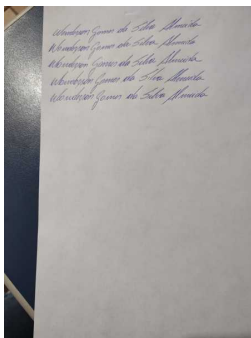 Wanderson Gomes da Silva Almeida
Wanderson Gomes da Silva Almeida
Wanderson Gomes da Silva Almeida
Wanderson Gomes da Silva Almeida
Wanderson Gomes da Silva Almeida